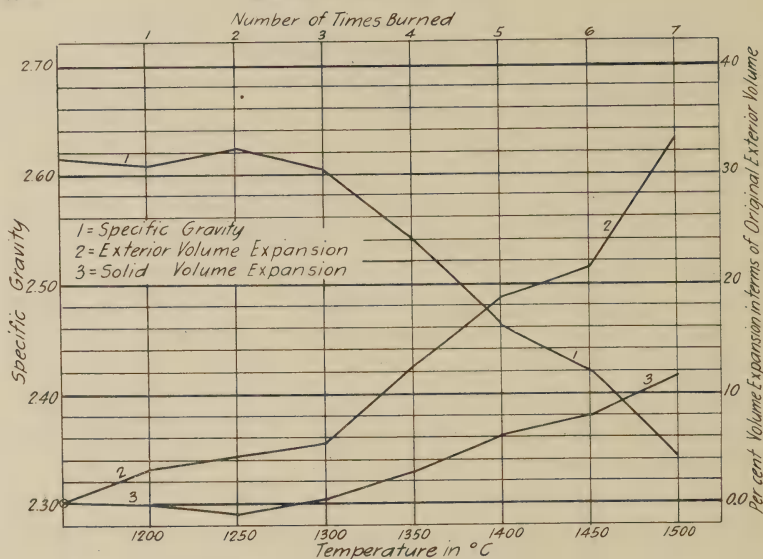 Number of Times Burned
1 2 3 4 5 6 7
2.70
2.60
2.50
2.40
2.30
Specific Gravity
40
30
20
10
0.0
Per cent Volume Expansion in terms of Original Exterior Volume
1 = Specific Gravity
2 = Exterior Volume Expansion
3 = Solid Volume Expansion
1
2
1
3
2
3
1200 1250 1300 1350 1400 1450 1500
Temperature in °C